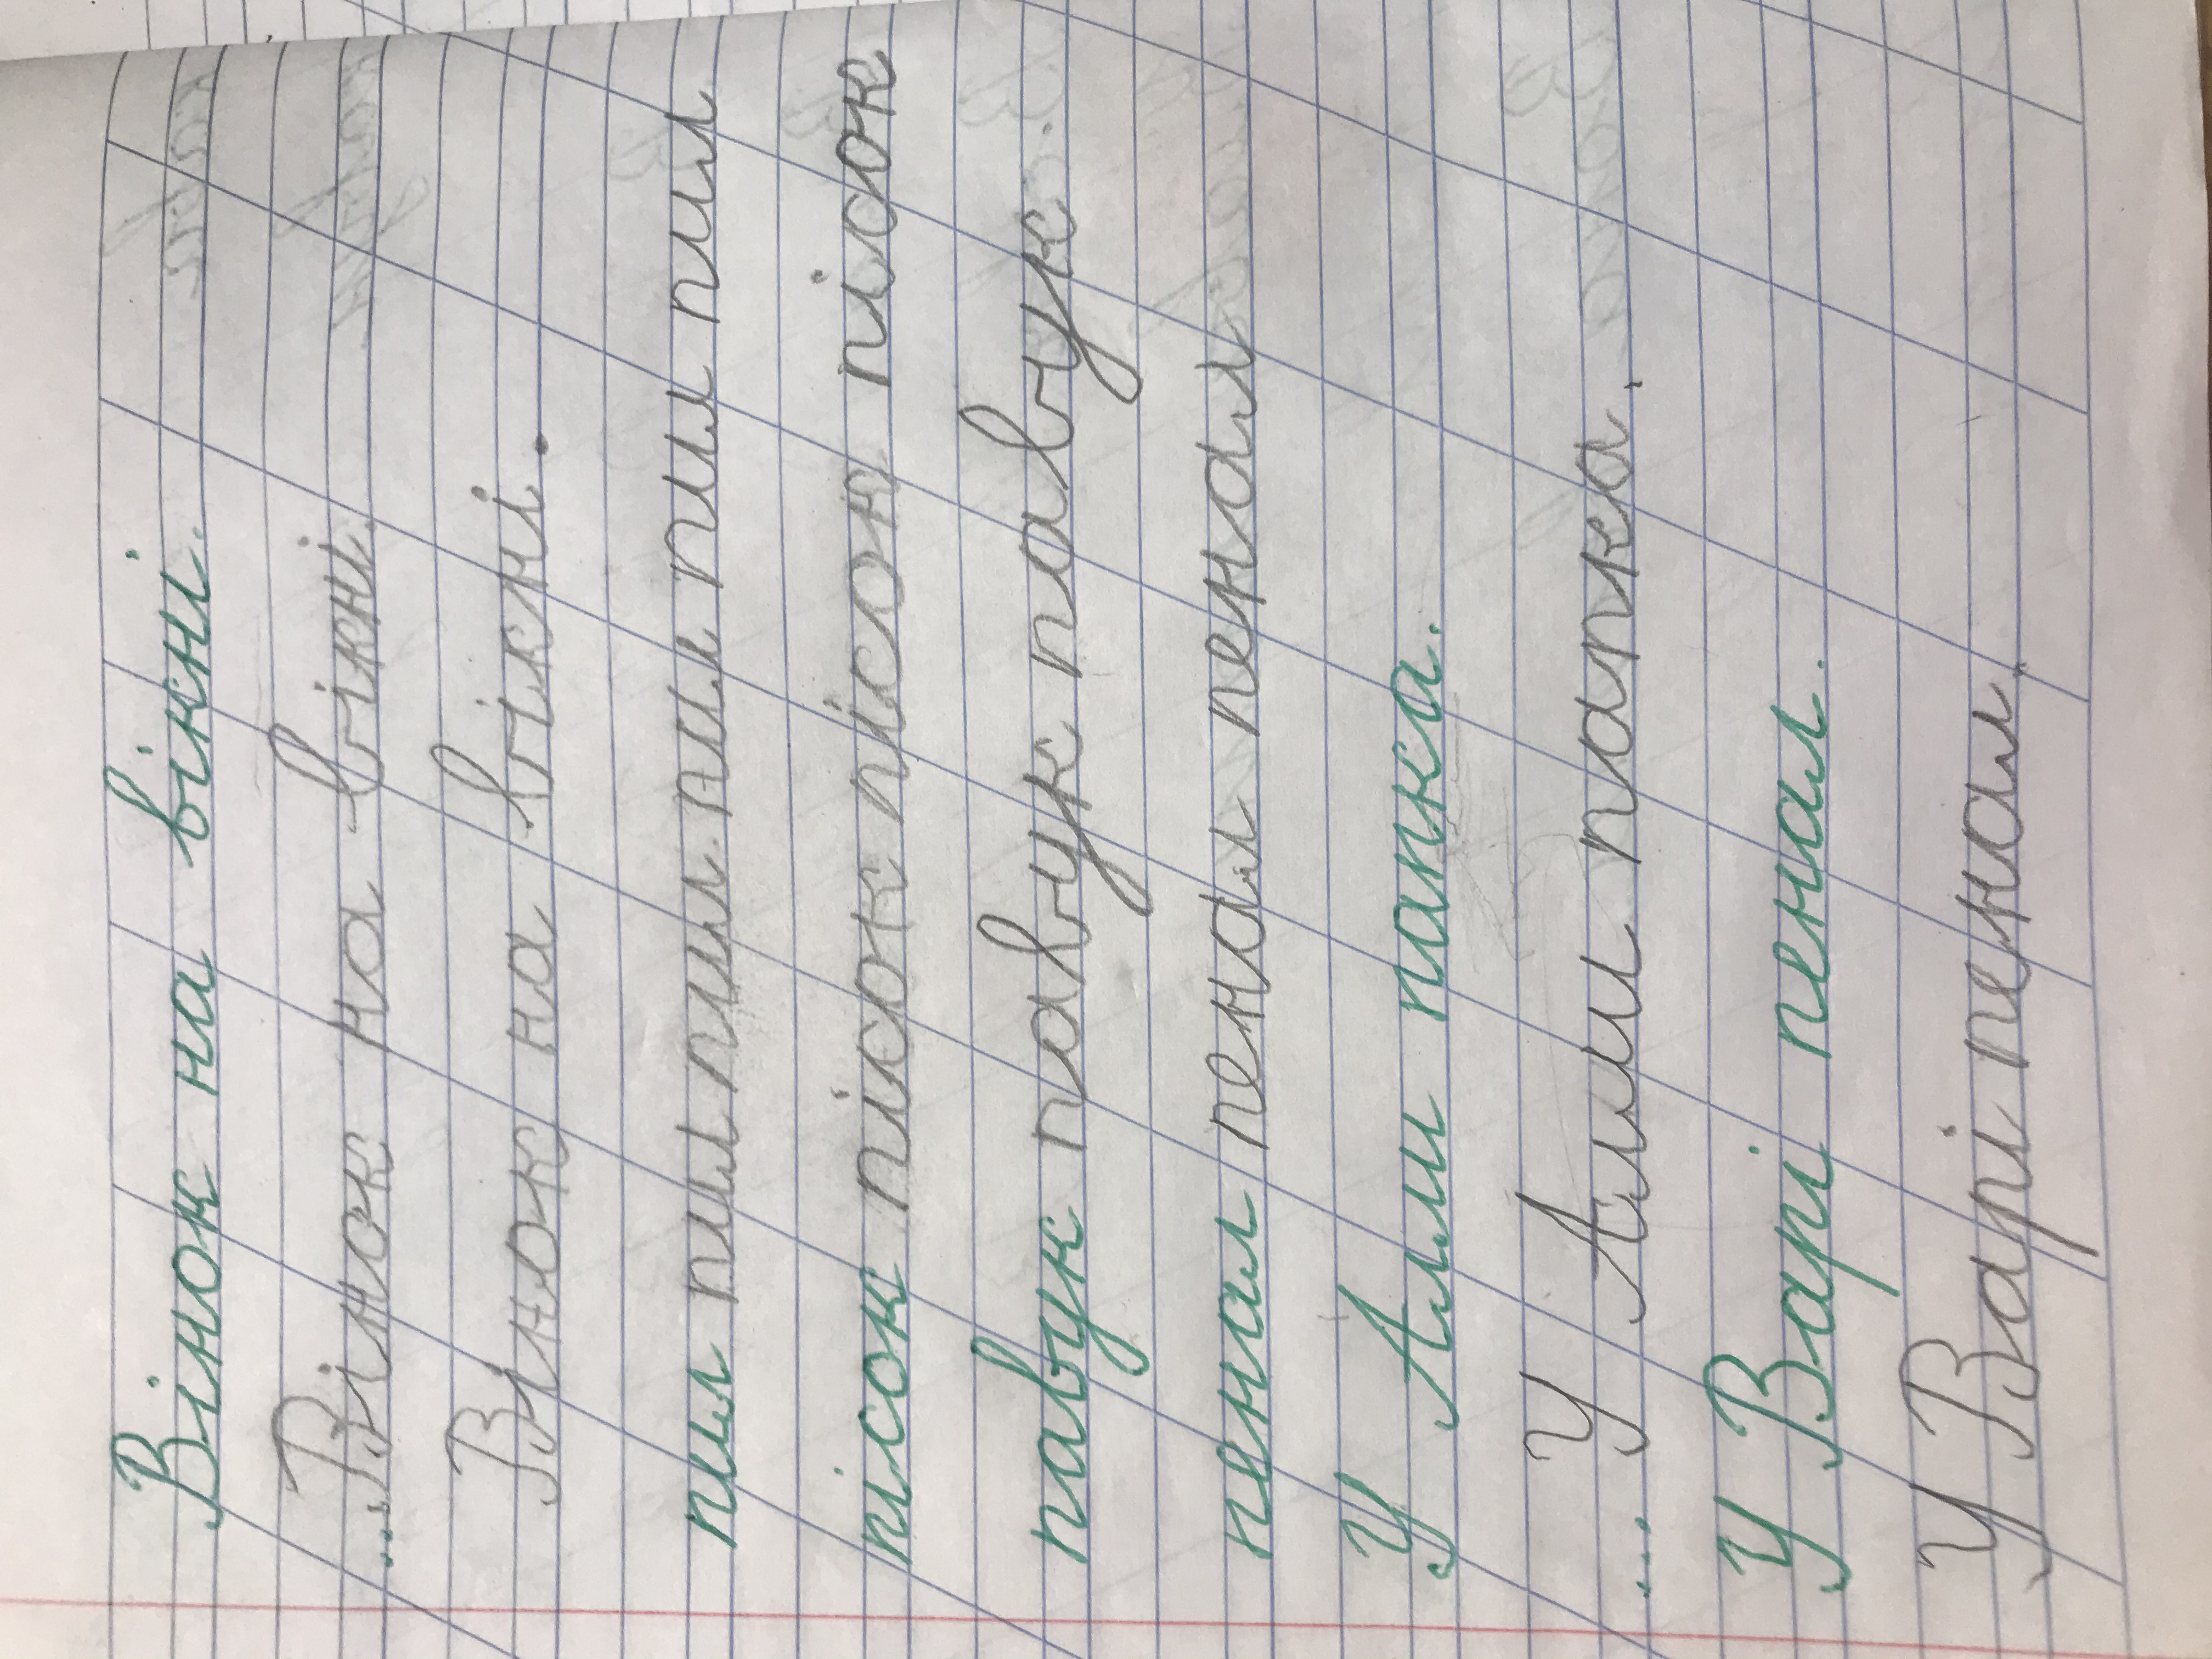 Вінок на вікні.
...Вінок на вікні.
Вінок на вікні.
пил пил пил пил пил пил
пісок пісок пісок пісок
павук павук павук
пенал пенал пенал
У Алли папка.
... У Алли папка.
У Варі пенал.
У Варі пенал.